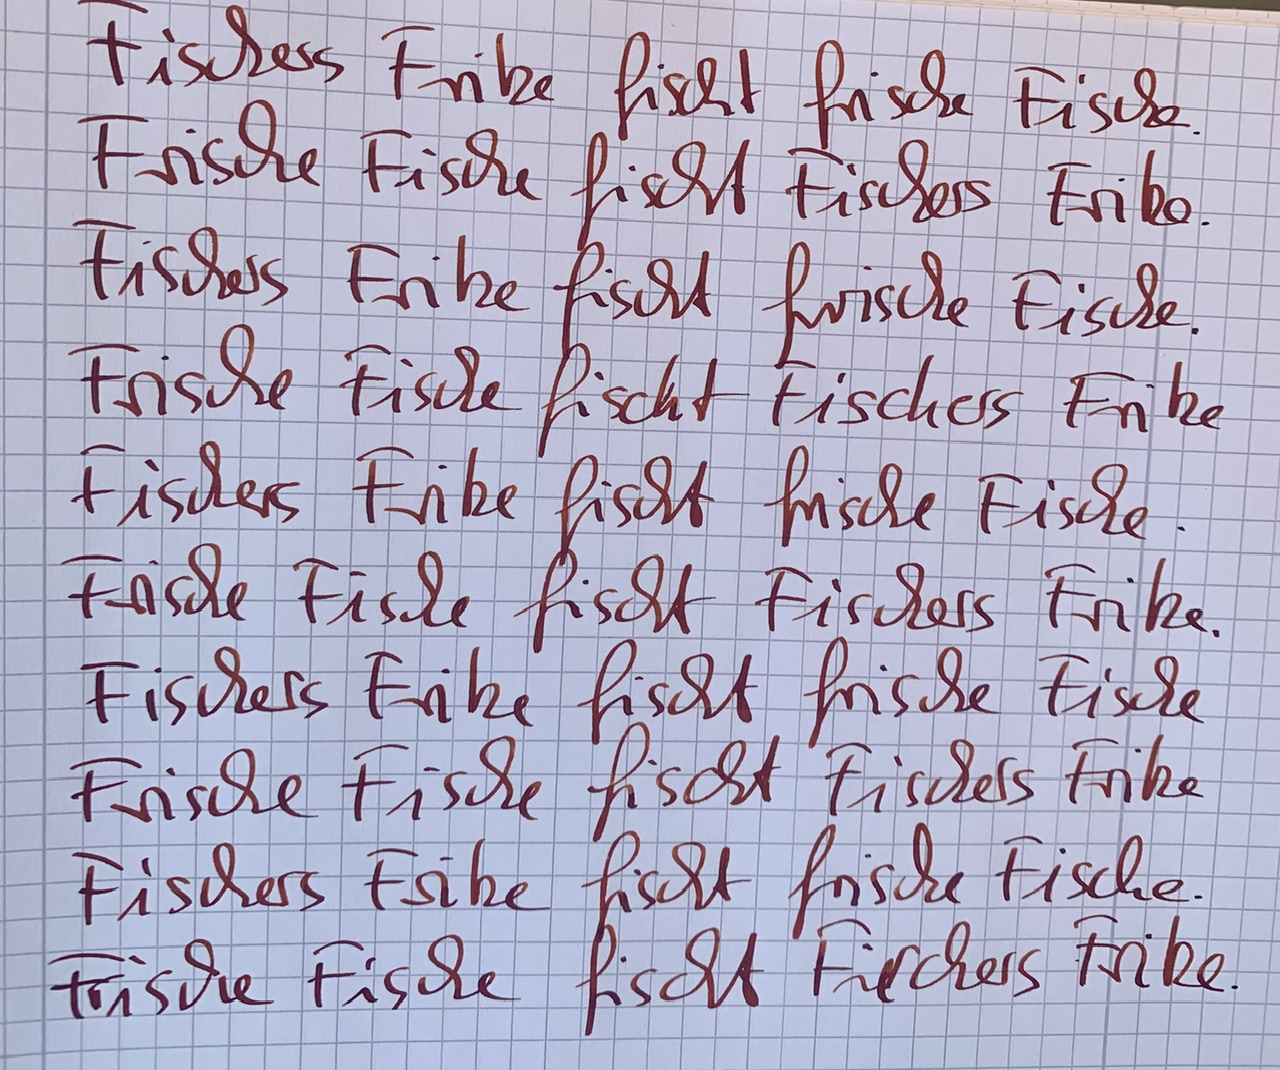 Fischers Frike fischt frische Fische.
Frische Fische fischt Fischers Frike.
Fischers Frike fischt frische Fische.
Frische Fische fischt Fischers Frike
Fischers Frike fischt frische Fische.
Frische Fische fischt Fischers Frike.
Fischers Frike fischt frische Fische
Frische Fische fischt Fischers Frike
Fischers Frike fischt frische Fische.
Frische Fische fischt Fischers Frike.